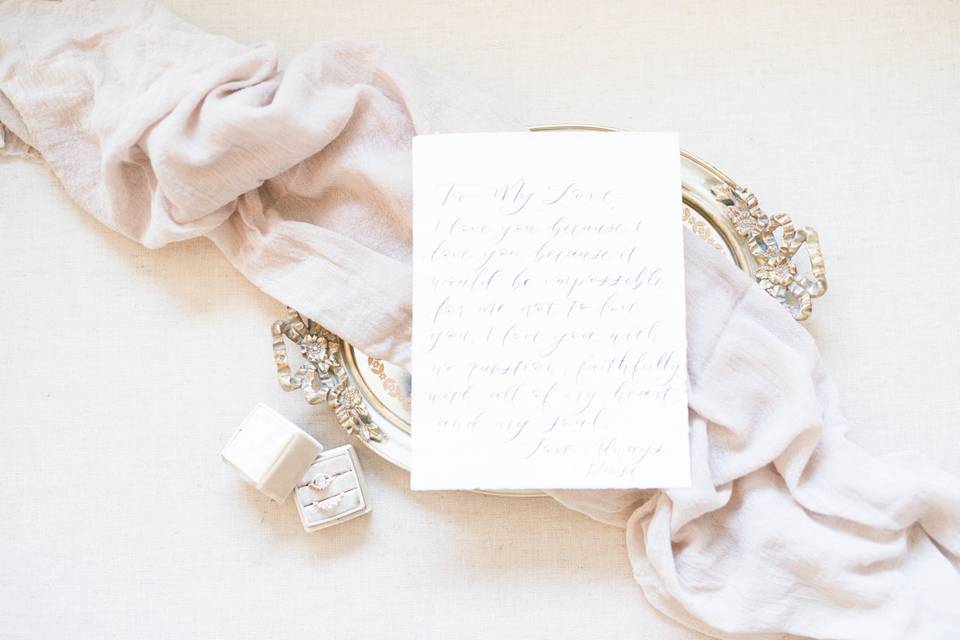 To My Love,
I love you because I
love you because it
would be impossible
for me not to love
you. I love you with
no question, faithfully
with all of my heart
and my soul.
Love Always